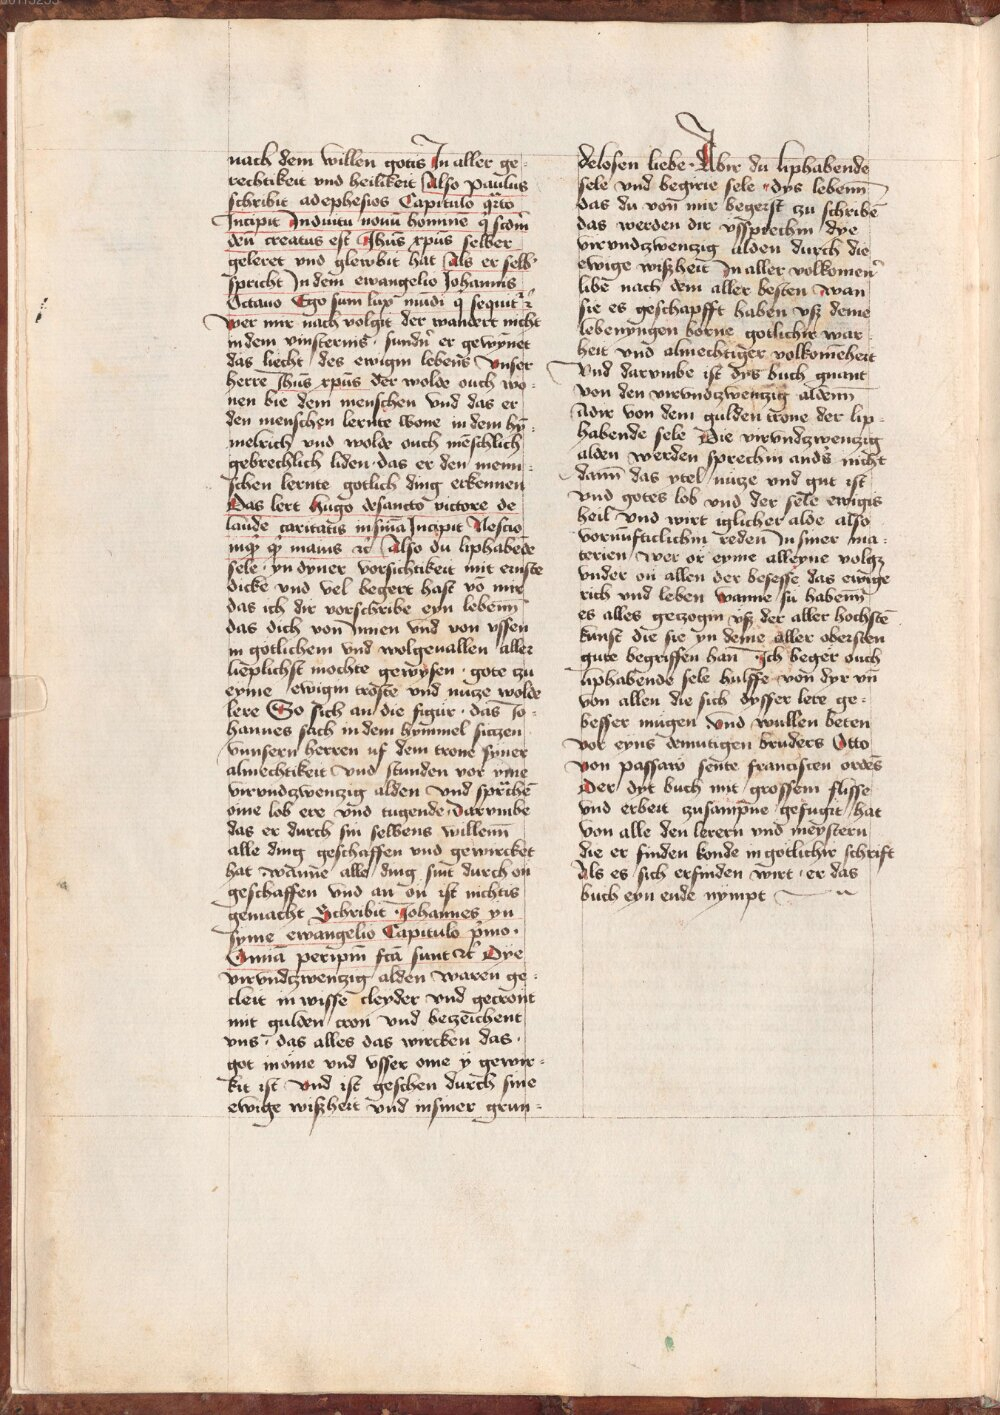 nach dem willen gotis In aller ge-
rechtikeit vnd heilikeit Also paulus
schribit adephesios Capitulo qrto
Incipit Induitu nouū hominē q̄ scdm̄
deū creatus est Ihūs xpūs selber
geleret vnd glewbit hat Als er selb
spricht In dem ewangelio Johannis
Octauo Ego sum lux mūdi q̄ sequit̄ ꝛc̄
wer mir nach volgit der wandert nicht
in dem vinsternis · sundn̄ er gewȳnet
das liecht des ewigin lebens Vnser
herre Ihūs xpūs der wolde ouch wo-
nen bie dem menschen vnd das er
den menschen lernte wone in dem hy̅-
melrich vnd wolde ouch mēschlich
gebrechlich liden · das er den menn-
schen lernte gotlich ding erkennen
Das lert hugo desancto victore de
laude caritatis Incipit Nescio
manus ꝛc Also du liphabēde
sele · yn dyner vorsichtikeit mit ernste
dicke vnd vel begert hast vō mir
das ich dir vorschribe eyn lebenn̄
das dich von Innen vnd von vssen
in gotlichem vnd wolgeuallen aller
lieplichst mochte gewysen · gote zu
eyme ewigin troste vnd nutze wolde
lere So sich an die figur · das Jo-
hannes sach in dem hymmel siczen
vunsern herren uf dem trone syner
almechtikeit vnd stunden vor yme
virvndczwenczig alden vnd sprchē
ome lob ere vnd tugende · Darumbe
das er durch sin selbens willenn̄
alle ding geschaffen vnd gewircket
hat wanne alle ding sint durch on
geschaffen vnd an on ist nichtis
gemacht Schribit · Johannes yn
syme ewangelio Capitulo p̄mo ·
Omīa per ipm̄ fcā sunt ꝛc̄ Dye
virvndczwenczig alden waren ge-
cleit in wisse cleyder vnd gecront
mit gulden cron vnd beczeichent
vns · das alles das wircken das ·
got in ome vnd vsser ome y gewir-
kit ist vnd ist geschen durch sine
ewige wiszheit vnd in siner grun-
delosen liebe · Abir du liphabende
sele vnd begirie sele · dys lebenn̄
das du von mir begerst zu schribē
das werden dir vssprechin dye
virvndczwenczig alden durch die
ewige wiszheit In aller volkomen̄
libe nach dem aller besten wan
sie es geschapfft haben vsz deme
lebenyngen borne gotlichir war-
heit vnd almechtiger volkomēheit
Vnd darvmbe ist dys buch gnant
von den virvndczwenczig aldenn̄
Adir von dem gulden trone der lip-
habende sele Die virvndczwenczig
alden werden sprechin ands nicht
dann̄ das ytel nucze vnd gut ist
vnd gotes lob vnd der sele ewigis
heil vnd wirt iglicher alde also
vornūfticlichin reden In siner ma-
terien wer or eyme alleyne volgz
vnder on allen der besesse das ewige
rich vnd leben wanne su habenn̄
es alles geczogin vsz der aller hochstē
kunst die sie yn deme aller obersten
gute begriffen han̄ Ich beger ouch
liphabende sele hulffe von dyr vn̄
von allen die sich dysser lere ge-
besser mugen vnd wullen beten
vor eyns demutigen bruders Otto
von passaw sente francissen ordēs
Der dyt buch mit grossem flisse
vnd erbeit zusampne gefugit hat
von alle den lerern vnd meystern
die er finden konde in gotlichir schrift
Als es sich erfinden wirt · er das
buch eyn ende nympt